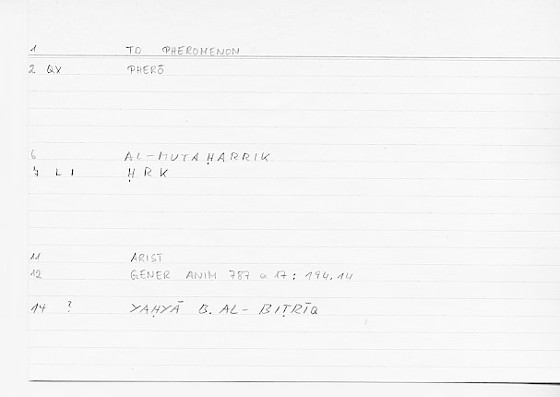 1 TO PHEROMENON
2 QX PHERŌ
6 AL-MUTAḤARRIK
7 L I ḤRK
11 ARIST
12 GENER ANIM 787 a 17; 194.14
14 ? YAḤYĀ B. AL-BIṬRĪQ